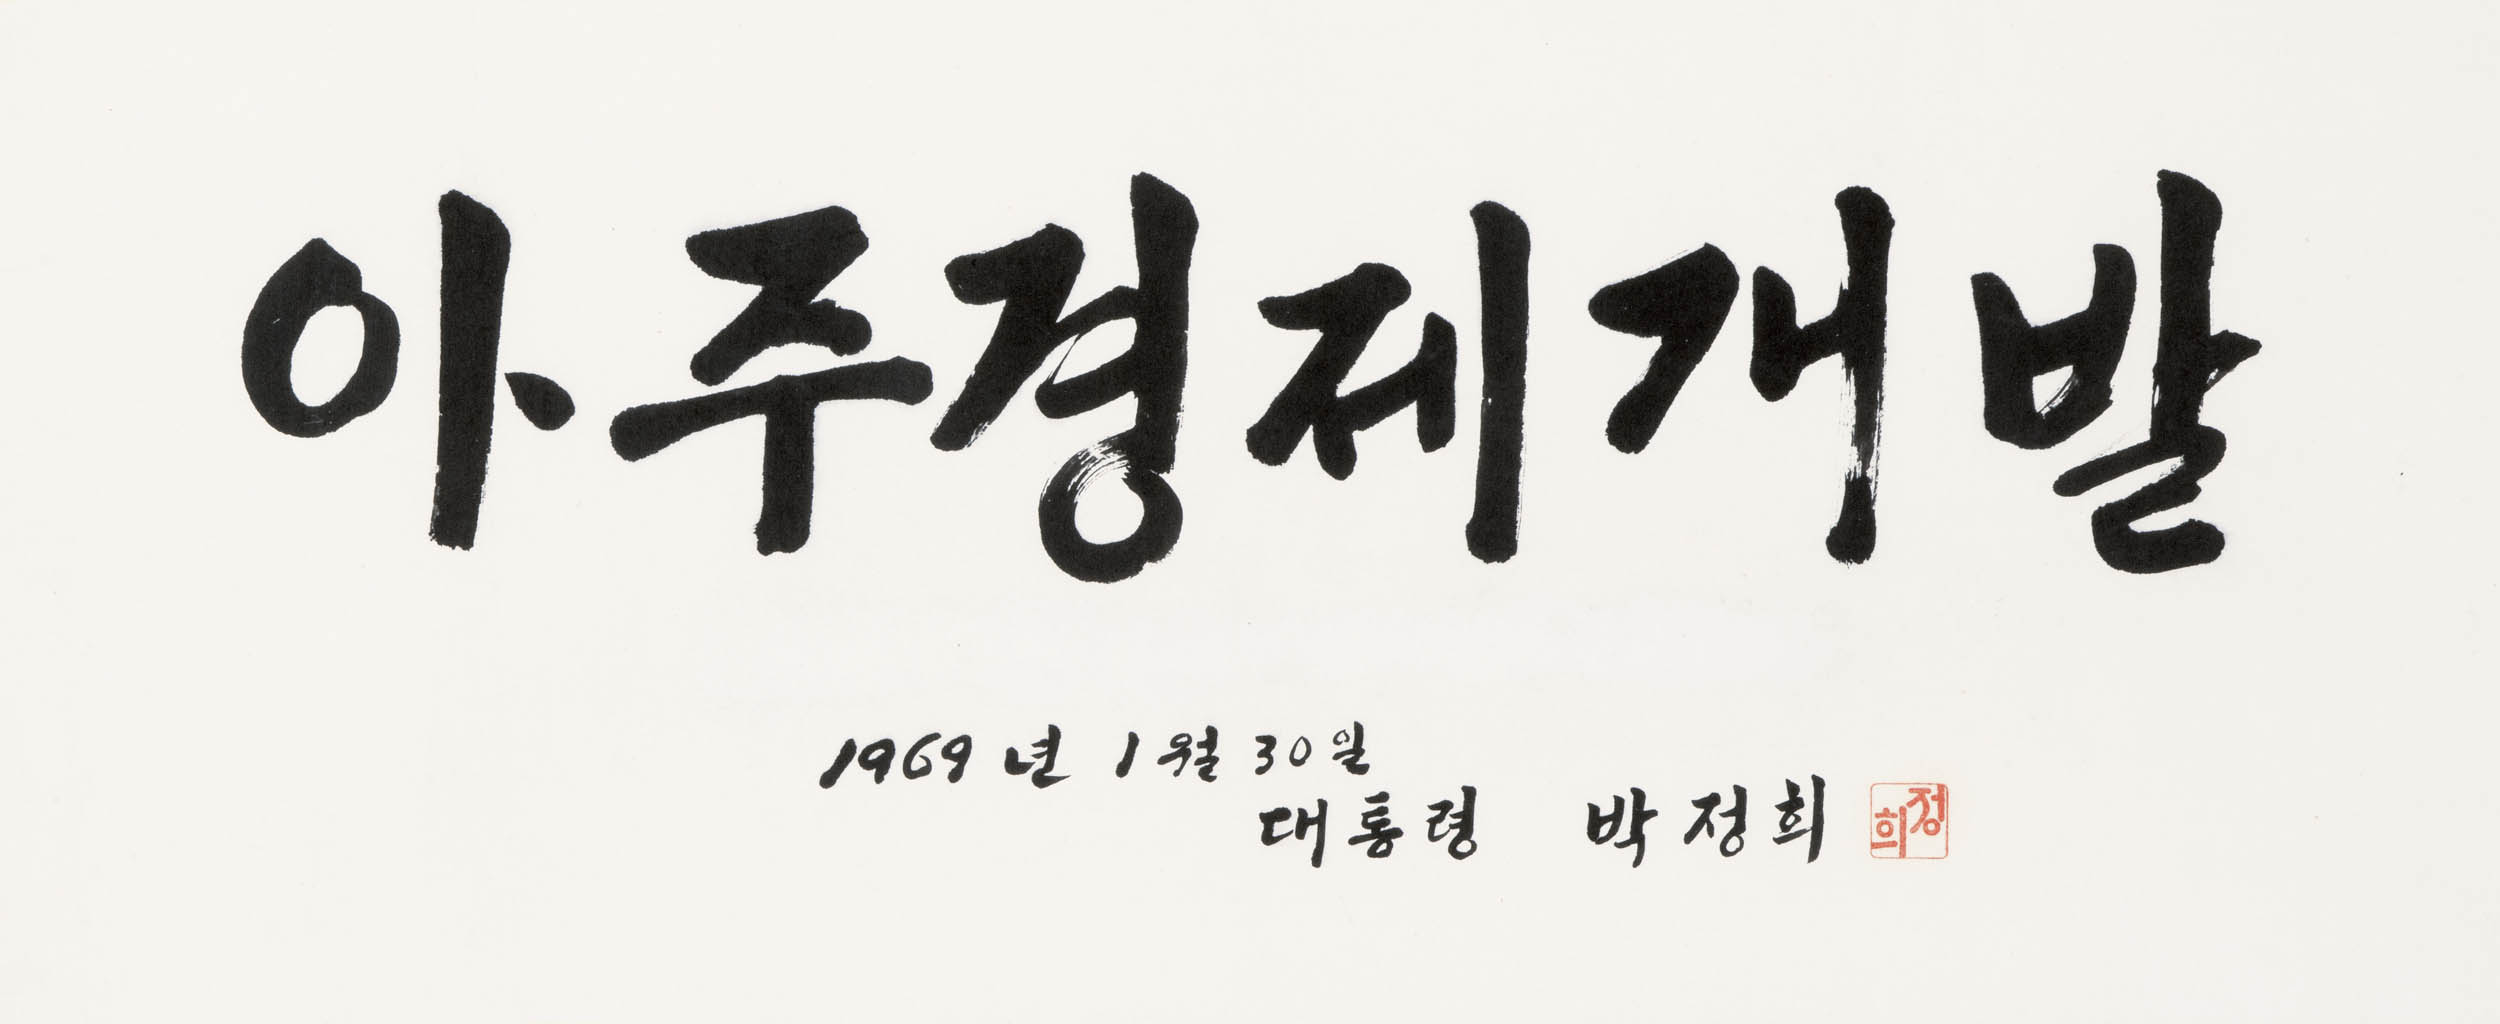 아주경제개발
1969년 1월 30일
대통령 박정희
정희